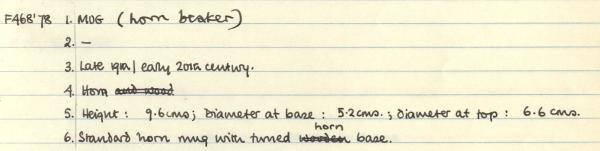 F468'78 1. MUG (horn beaker)
2. —
3. Late 19th / early 20th century.
4. Horn and wood
5. Height: 9.6cms; Diameter at base: 5.2cms.; Diameter at top: 6.6 cms.
horn
6. Standard horn mug with turned wooden base.